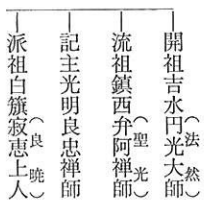 開祖吉水円光大師（法然）
流祖鎮西弁阿禅師（聖光）
記主光明良忠禅師
派祖白籏寂恵上人（良暁）